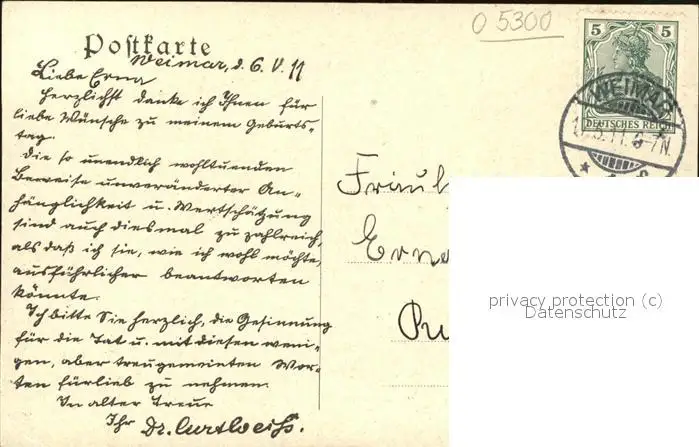 O 5300
Postkarte
Weimar, d. 6. V. 11
Liebe Erna
Herzlichst danke ich Ihnen für
liebe Wünsche zu meinem Geburts-
tag.
Die so unendlich wohltuenden
Beweise unveränderter An-
hänglichkeit u. Wertschätzung
sind auch diesmal zu zahlreich,
als daß ich sie, wie ich wohl möchte,
ausführlicher beantworten
könnte.
Ich bitte Sie herzlich, die Gesinnung
für die Tat u. mit diesen weni-
gen, aber treugemeinten Wor-
ten fürlieb zu nehmen.
In alter Treue
Ihr Dr. Curt Weiß.
5 5
DEUTSCHES REICH
WEIMAR
5.11. 6-7N.
Fräul
Erna
privacy protection (c)
Datenschutz